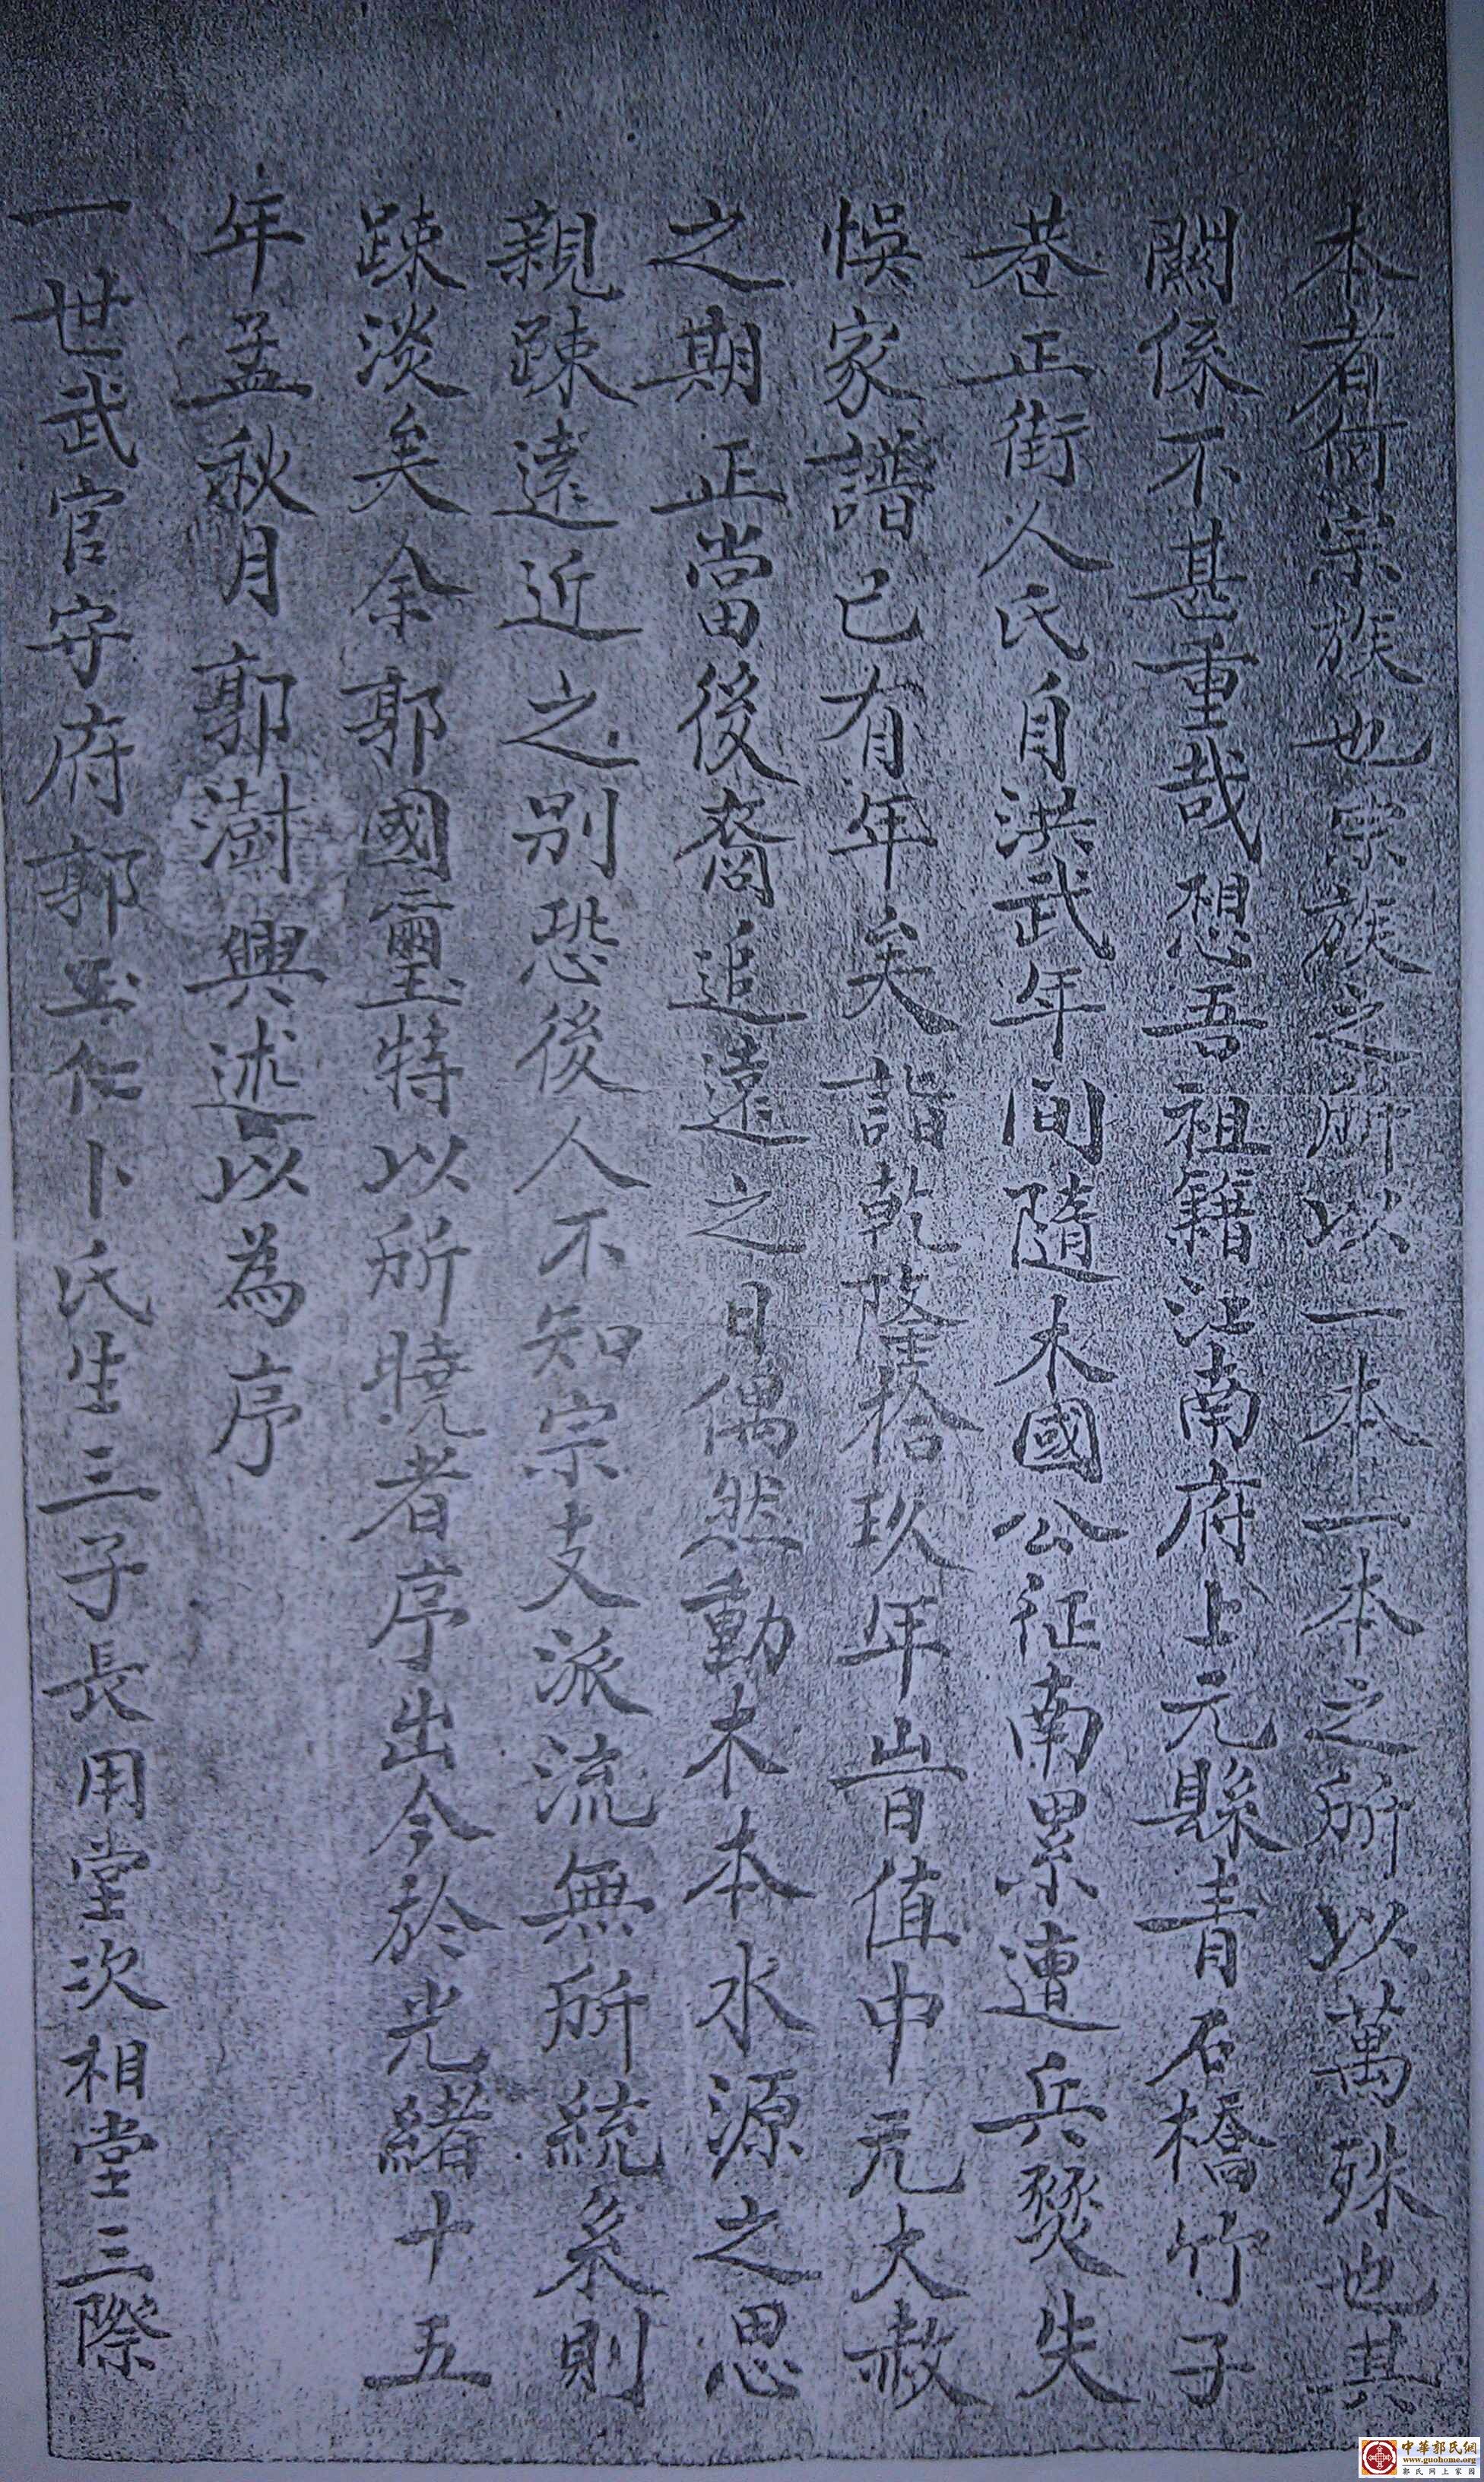 本者何宗族也宗族之所以一本一本之所以萬殊也其
關係不甚重哉想吾祖籍江南府上元縣青石橋竹子
巷正街人氏自洪武年間隨木國公征南累遭兵燹失
悞家譜已有年矣詣乾隆拾玖年旹值中元大赦
之期正當後裔追遠之日偶然動木本水源之思
親踈遠近之别恐後人不知宗支派流無所統系則
踈淡矣余郭國璽特以所曉者序出今於光緒十五
年孟秋月郭澍興述以為序
一世武官守府郭玉仁卜氏生三子長用堂次相堂三際
中華郭氏網
www.guohome.org
郭氏网上家园